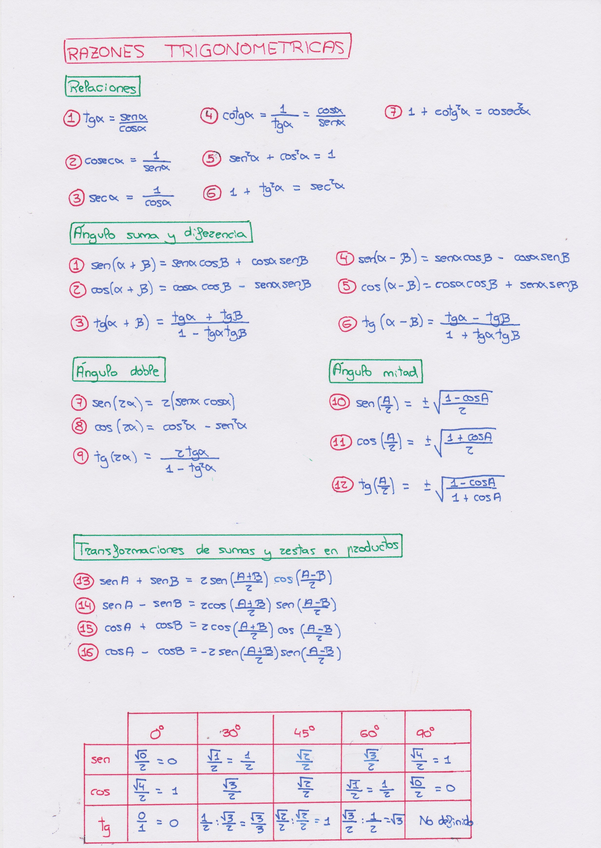 RAZONES TRIGONOMETRICAS
Relaciones
① tgα = senα/cosα
④ cotgα = 1/tgα = cosα/senα
⑦ 1 + cotg²α = cosec²α
② cosecα = 1/senα
⑤ sen²α + cos²α = 1
③ secα = 1/cosα
⑥ 1 + tg²α = sec²α
Ángulo suma y diferencia
① sen(α + β) = senα cosβ + cosα senβ
④ sen(α - β) = senα cosβ - cosα senβ
② cos(α + β) = cosα cosβ - senα senβ
⑤ cos(α - β) = cosα cosβ + senα senβ
③ tg(α + β) = tgα + tgβ / 1 - tgα tgβ
⑥ tg(α - β) = tgα - tgβ / 1 + tgα tgβ
Ángulo doble
⑦ sen(2α) = 2(senα cosα)
⑧ cos(2α) = cos²α - sen²α
⑨ tg(2α) = 2tgα / 1 - tg²α
Ángulo mitad
⑩ sen(A/2) = ±√(1 - cosA / 2)
⑪ cos(A/2) = ±√(1 + cosA / 2)
⑫ tg(A/2) = ±√(1 - cosA / 1 + cosA)
Transformaciones de sumas y restas en productos
⑬ senA + senB = 2sen(A+B/2) cos(A-B/2)
⑭ senA - senB = 2cos(A+B/2) sen(A-B/2)
⑮ cosA + cosB = 2cos(A+B/2) cos(A-B/2)
⑯ cosA - cosB = -2sen(A+B/2) sen(A-B/2)
0° 30° 45° 60° 90°
sen √0/2 = 0 √1/2 = 1/2 √2/2 √3/2 √4/2 = 1
cos √4/2 = 1 √3/2 √2/2 √1/2 = 1/2 √0/2 = 0
tg 0/1 = 0 1/2 : √3/2 = √3/3 √2/2 : √2/2 = 1 √3/2 : 1/2 = √3 No definido